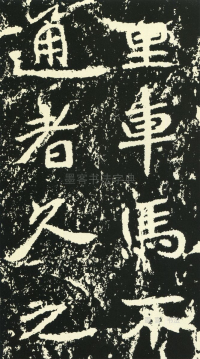 里車馬不
通者久之